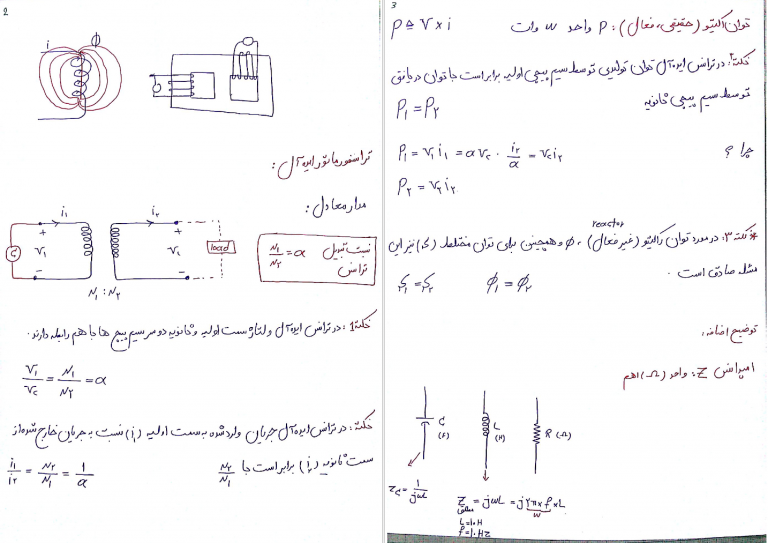 2
i
ϕ
ترانسفورماتور ایده آل :
مدار معادل :
i₁
i₂
+
+
V₁
V₂
load
-
-
N₁ : N₂
نسبت تبدیل
N₁/N₂ = α
ترانس
نکته 1 : در ترانس ایده آل ولتاژ سمت اولیه و ثانویه دو سر سیم پیچ ها با هم رابطه دارند.
V₁/V₂ = N₁/N₂ = α
نکته : در ترانس ایده آل جریان وارد شده به سمت اولیه (i₁) نسبت به جریان خارج شده از
سمت ثانویه (i₂) برابر است با N₂/N₁
i₁/i₂ = N₂/N₁ = 1/α
3
توان اکتیو (حقیقی، فعال) : P واحد W وات
P ≜ V × i
نکته ۲: در ترانس ایده آل توان تولیدی توسط سیم پیچی اولیه برابر است با توان دریافتی
توسط سیم پیچی ثانویه
P₁ = P₂
چرا ؟
P₁ = V₁i₁ = αV₂ · i₂/α = V₂i₂
P₂ = V₂i₂
reactor
*نکته ۳: در مورد توان راکتیو (غیر فعال) ، ϕ و همچنین برای توان مختلط (S) نیز این
مسئله صادق است .
S₁ = S₂
ϕ₁ = ϕ₂
توضیح اضافه :
امپدانس Z : واحد (Ω) اهم
C
(F)
L
(H)
R (Ω)
Z_C = 1/jωC
Z = jωL = j2π × f × L
ω
L = 1.H
f = 1.Hz